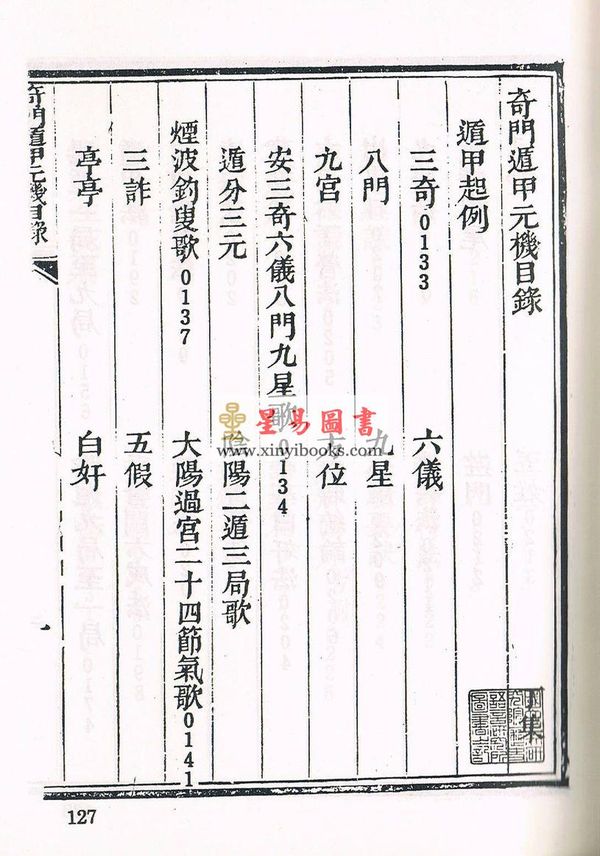 奇門遁甲元機目錄
集
遁甲起例
三奇0133 六儀
八門 九星
九宮 位
安三奇六儀八門九星歌0134
遁分三元 陰陽二遁三局歌
煙波釣叟歌0137 大陽過宮二十四節氣歌0141
三詐 五假
亭亭 白奸
奇門遁甲元機目錄
一
127
星易圖書
www.xinyibooks.com